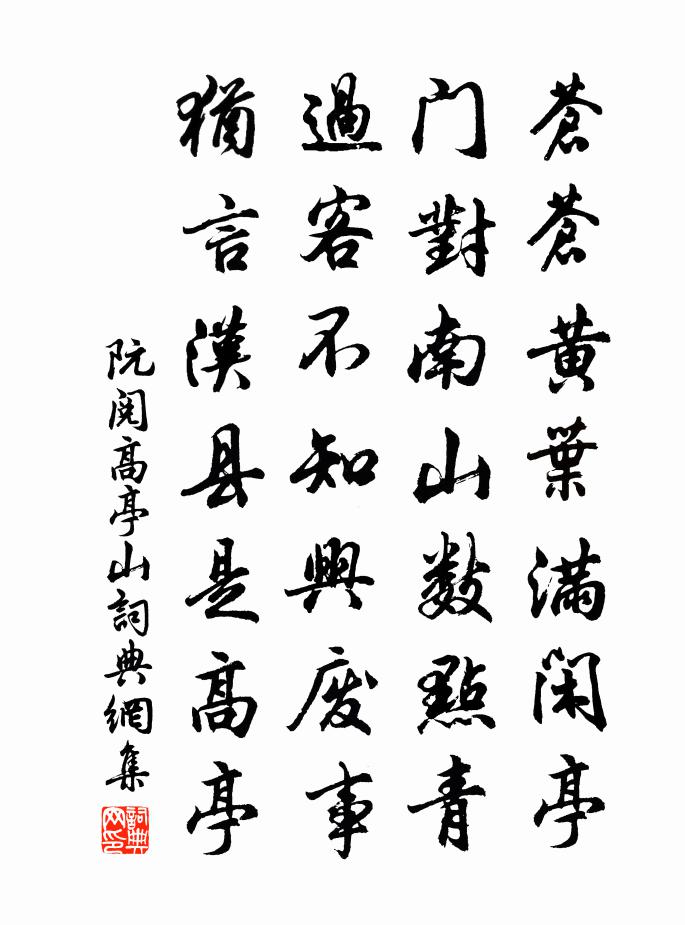 蒼蒼黃葉滿閑亭
門對南山數點青
過客不知興廢事
猶言漢县是高亭
阮閱高亭山詞典網集
詞典网印